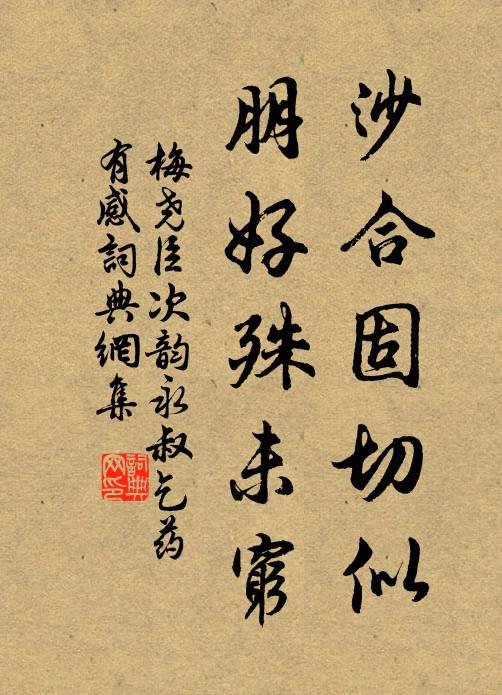 沙合固切似
朋好殊未穷
梅尧臣次韵永叔乞药
有感詞典網集
詞典
网印